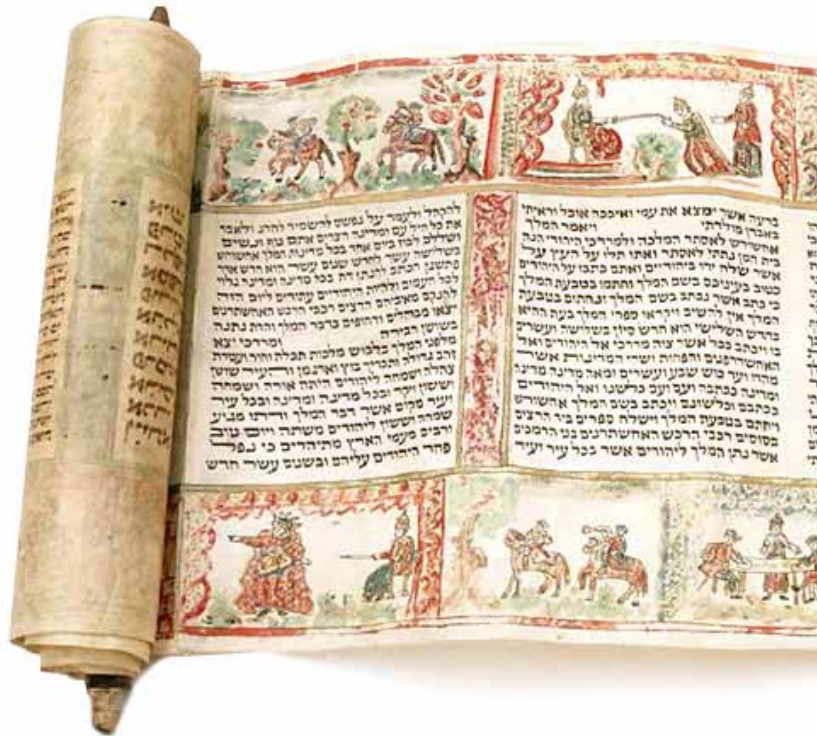 ברעה אשר ימצא את עמי ואיככה אוכל וראיתי
באבדן מולדתי ויאמר המלך
אחשורש לאסתר המלכה ולמרדכי היהודי הנה
בית המן נתתי לאסתר ואתו תלו על העץ על
אשר שלח ידו ביהודיים ואתם כתבו על היהודים
כטוב בעיניכם בשם המלך וחתמו בטבעת המלך
כי כתב אשר נכתב בשם המלך ונחתום בטבעת
המלך אין להשיב ויקראו ספרי המלך בעת ההיא
בחדש השלישי הוא חדש סיון בשלישה ועשרים
בו ויכתב ככל אשר צוה מרדכי אל היהודים ואל
האחשדרפנים והפחות ושרי המדינות אשר
מהדו ועד כוש שבע ועשרים ומאה מדינה מדינה
ומדינה ככתבה ועם ועם כלשנו ואל היהודים
ככתבם וכלשונם ויכתב בשם המלך אחשורש
ויחתם בטבעת המלך וישלח ספרים ביד הרצים
בסוסים רכבי הרכש האחשתרנים בני הרמכים
אשר נתן המלך ליהודים אשר בכל עיר ועיר
להקהל ולעמד על נפשם להשמיד להרג ולאבד
את כל חיל עם ומדינה הצרים אתם טף ונשים
ושללם לבוז ביום אחד בכל מדינות המלך אחשורש
בשלושה עשר לחדש שנים עשר הוא חדש אדר
פתשגן הכתב להנתן דת בכל מדינה ומדינה גלוי
לכל העמים ולהיות היהודיים עתידים ליום הזה
להנקם מאיביהם הרצים רכבי הרכש האחשתרנים
יצאו מבהלים ודחופים בדבר המלך והדת נתנה
בשושן הבירה ומרדכי יצא
מלפני המלך בלבוש מלכות תכלת וחור ועטרת
זהב גדולה ותכריך בוץ וארגמן והעיר שושן
צהלה ושמחה ליהודים היתה אורה ושמחה
וששון ויקר ובכל מדינה ומדינה ובכל עיר
ועיר מקום אשר דבר המלך ודתו מגיע
שמחה וששון ליהודים משתה ויום טוב
ורבים מעמי הארץ מתיהדים כי נפל
פחד היהודים עליהם ובשנים עשר חדש